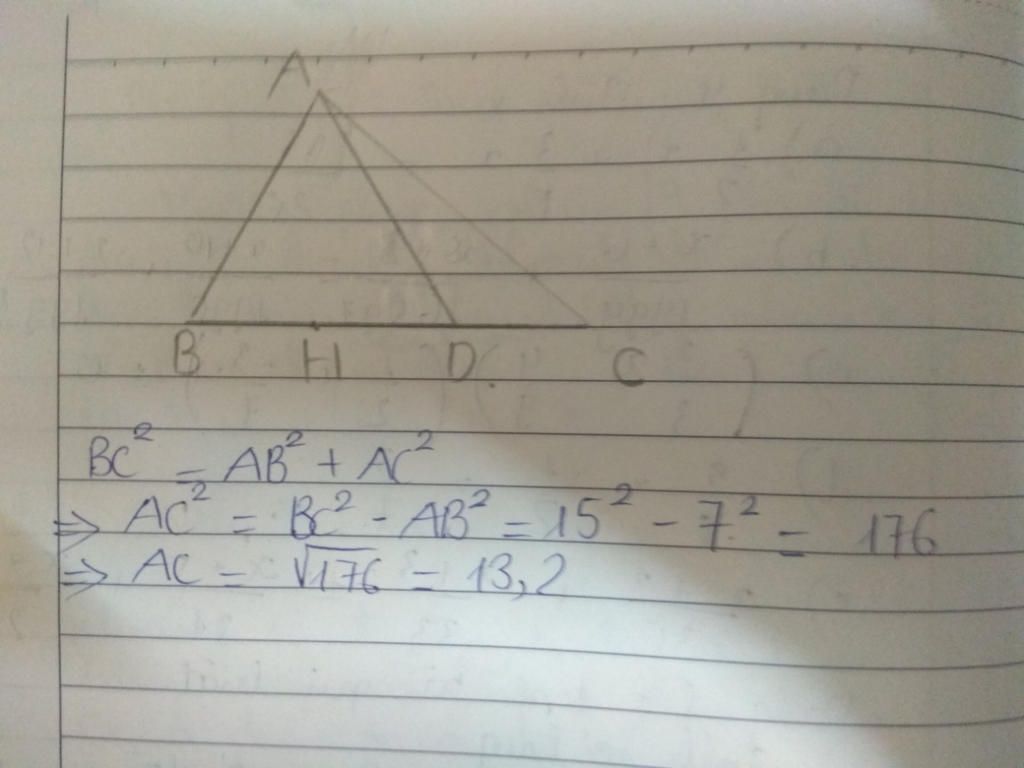 A
B H D. C
BC² = AB² + AC²
=> AC² = BC² - AB² = 15² - 7² = 176
=> AC = √176 = 13,2